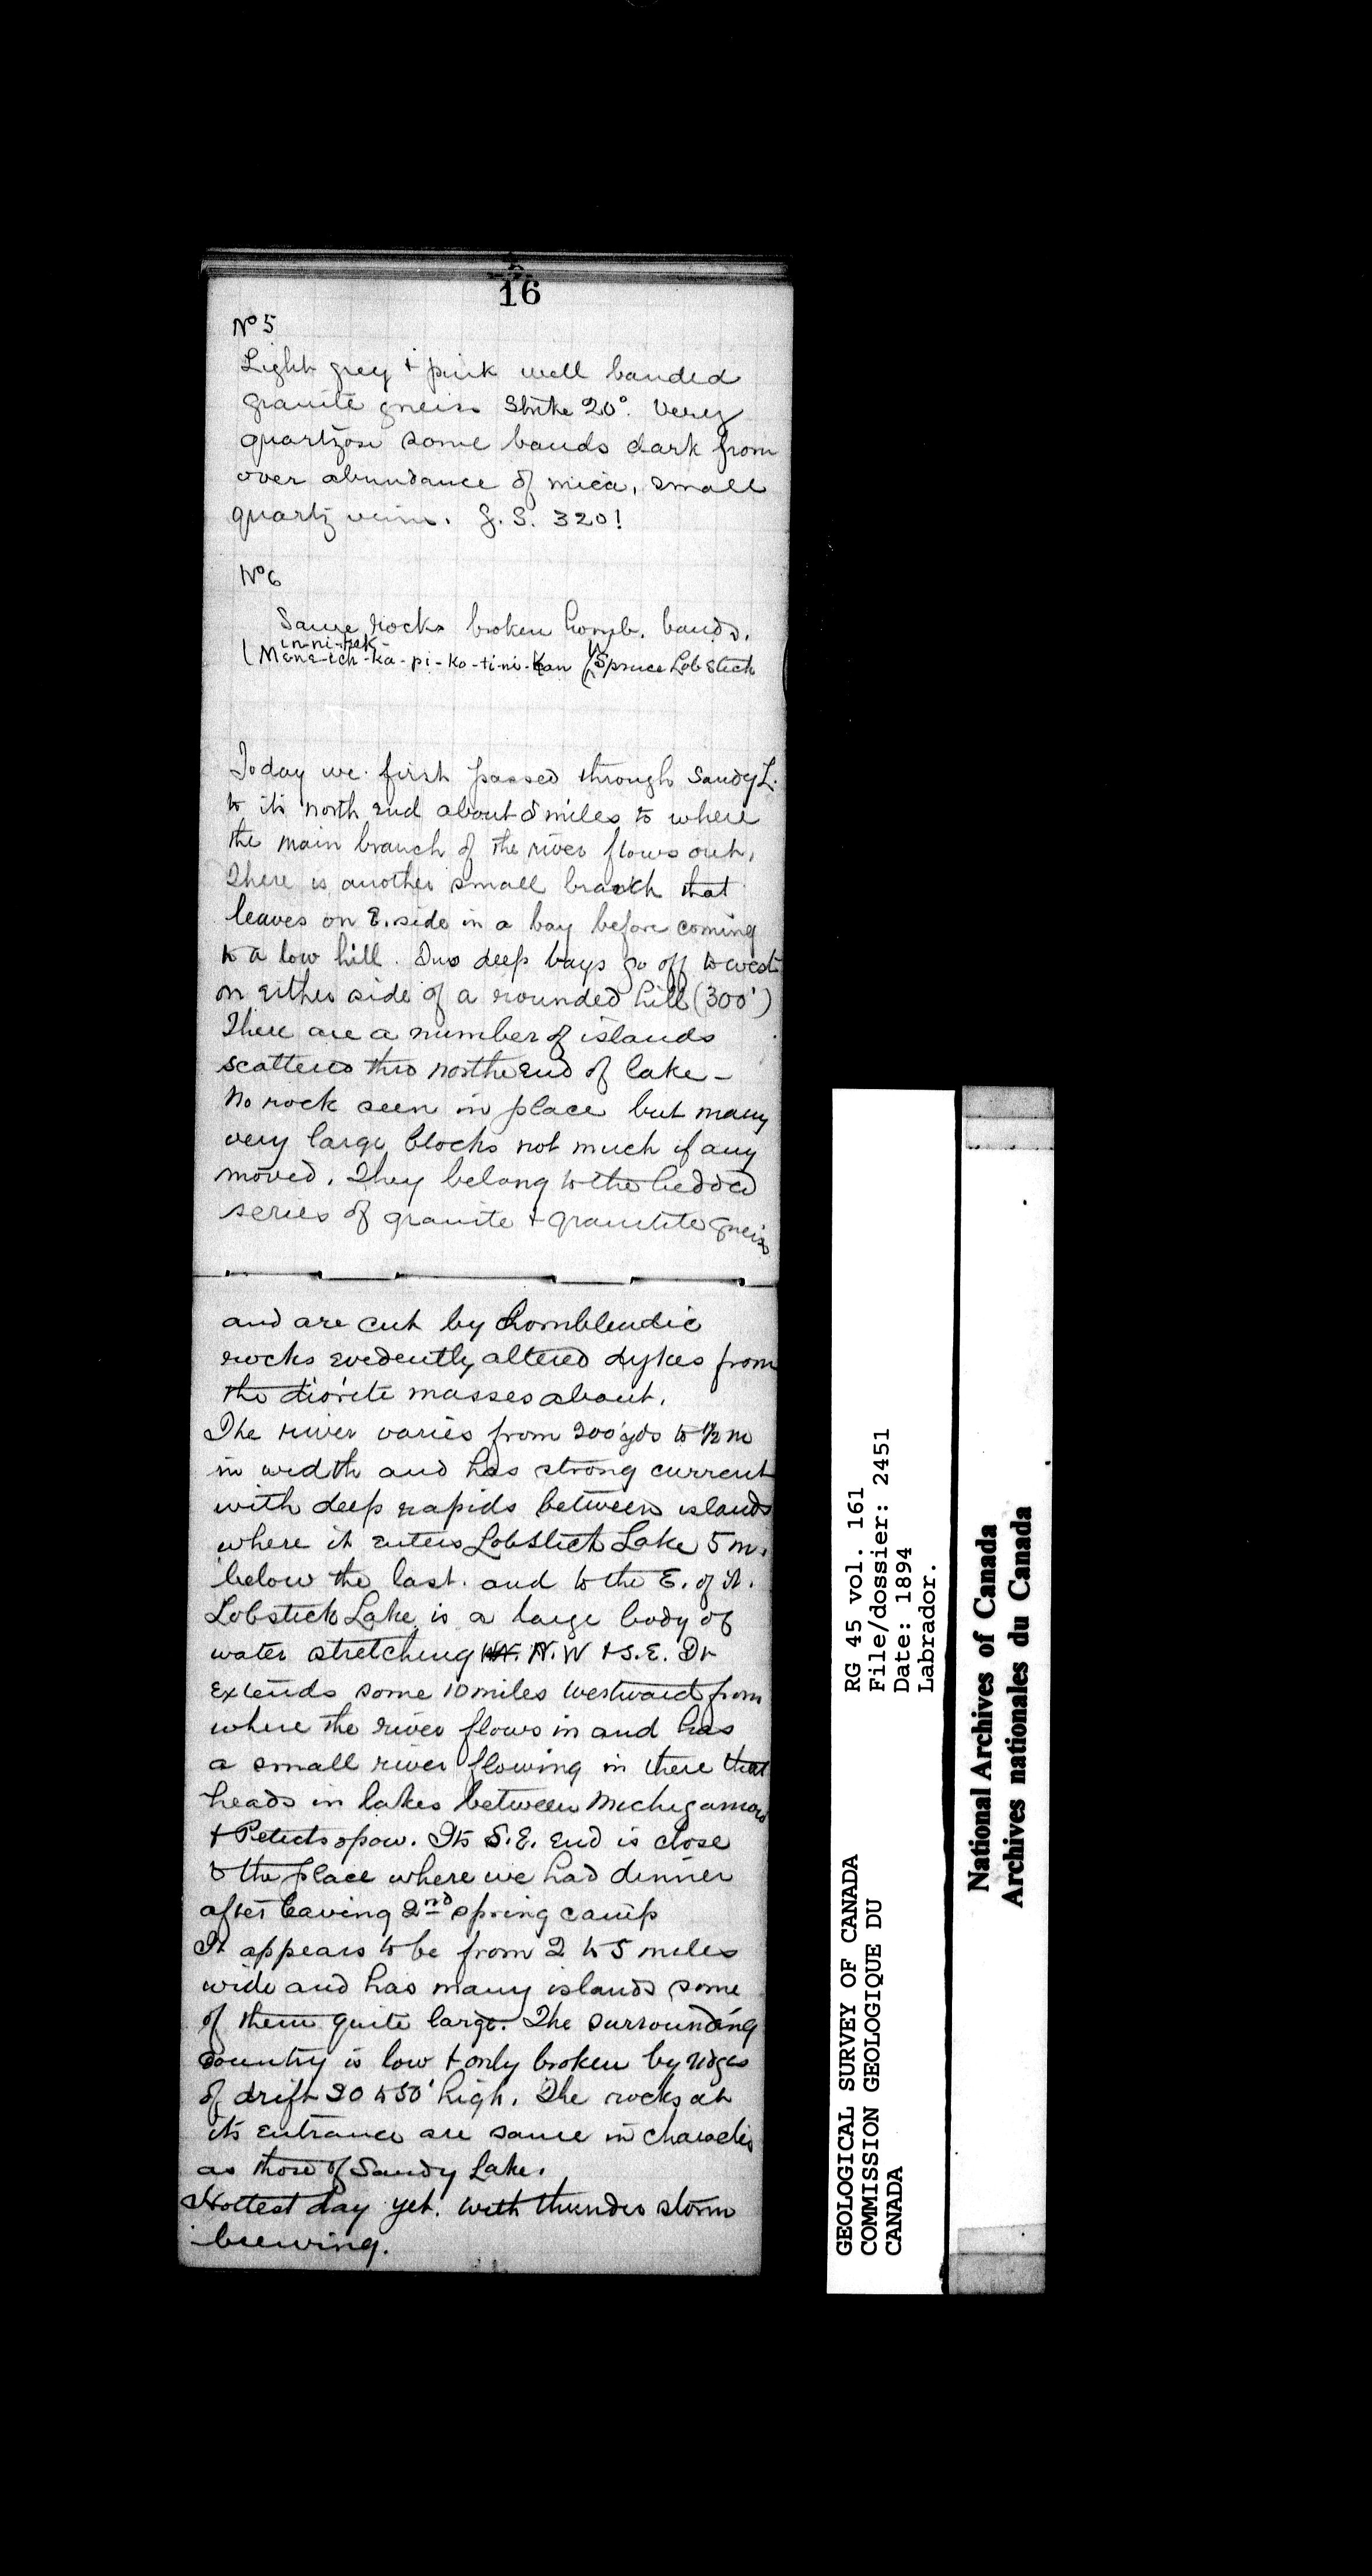 16
No 5
Light grey + pink well banded
granite gneiss Strike 20°. Very
quartzose some bands dark from
over abundance of mica, small
quartz veins. G. S. 320!
No 6
Same rocks broken homb. bands.
in-ni-tak-
(Mene-ich-ka-pi-ko-ti-ni-kan (Spruce Lobstick
Today we first passed through Sandy L.
to its north end about 8 miles to where
the main branch of the river flows out,
There is another small branch that
leaves on E. side in a bay before coming
to a low hill. Two deep bays go off to west
on either side of a rounded hill (300')
There are a number of islands
scattered thro north end of lake -
No rock seen in place but many
very large blocks not much if any
moved. They belong to the bedded
series of granite + granitite gneiss
and are cut by hornblendic
rocks evedently altered dykes from
the diorite masses about.
The river varies from 200 yds to 1/2 m
in width and has strong current
with deep rapids between islands
where it enters Lobstick Lake 5 m.
below the last. and to the E. of it.
Lobstick Lake is a large body of
water stretching N.W + S.E. It
Extends some 10 miles westward from
where the river flows in and has
a small river flowing in there that
heads in lakes between Michigamow
+ Petitsopow. Its S.E. end is close
to the place where we had dinner
after leaving 2nd spring camp
It appears to be from 2 to 5 miles
wide and has many islands some
of them quite large. The surrounding
country is low + only broken by ridges
of drift 20 to 50' high. The rocks at
its entrance are same in character
as those of Sandy Lake.
Hottest day yet. with thunder storm
brewing.
GEOLOGICAL SURVEY OF CANADA
COMMISSION GEOLOGIQUE DU
CANADA
RG 45 vol. 161
File/dossier: 2451
Date: 1894
Labrador.
National Archives of Canada
Archives nationales du Canada